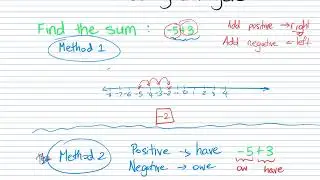 Find the sum : -5+3
Add positive → right
Add negative ← left
Method 1
-8 -7 -6 -5 -4 -3 -2 -1 0 1 2 3 4
-2
Method 2
Positive → have
-5+3
Negative → owe
ow have